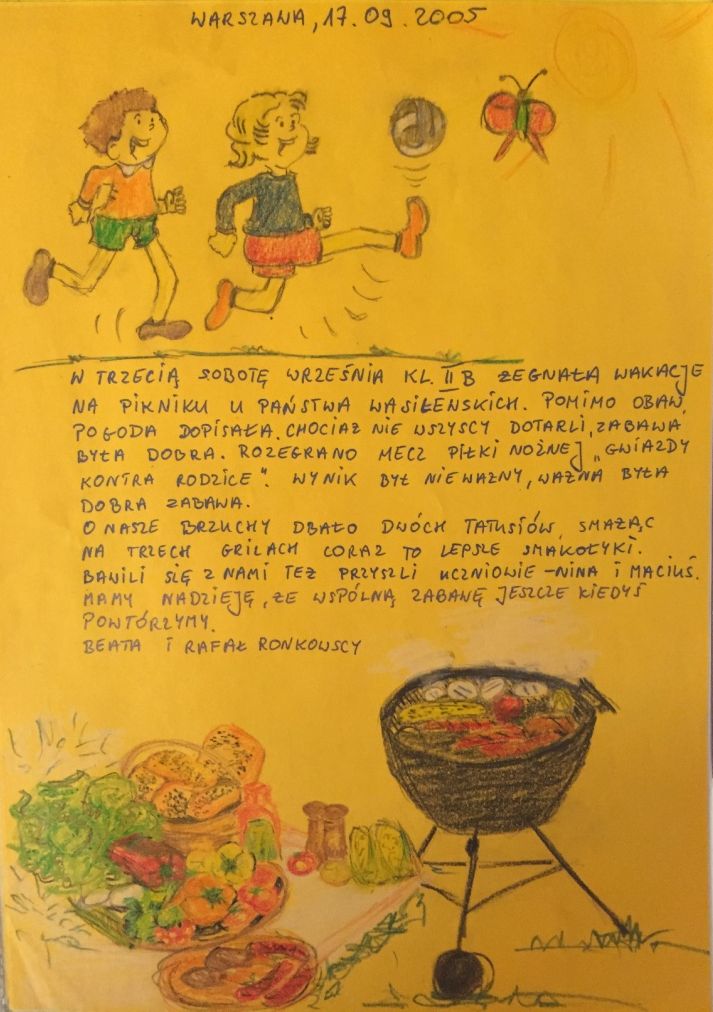 WARSZAWA, 17.09.2005
W TRZECIĄ SOBOTĘ WRZEŚNIA KL. II B ŻEGNAŁA WAKACJE
NA PIKNIKU U PAŃSTWA WASILEŃSKICH. POMIMO OBAW,
POGODA DOPISAŁA. CHOCIAŻ NIE WSZYSCY DOTARLI, ZABAWA
BYŁA DOBRA. ROZEGRANO MECZ PIŁKI NOŻNEJ „GWIAZDY
KONTRA RODZICE". WYNIK BYŁ NIEWAŻNY, WAŻNA BYŁA
DOBRA ZABAWA.
O NASZE BRZUCHY DBAŁO DWÓCH TATUSIÓW, SMAŻĄC
NA TRZECH GRILACH CORAZ TO LEPSZE SMAKOŁYKI.
BAWILI SIĘ Z NAMI TEŻ PRZYSZLI UCZNIOWIE – NINA I MACIUŚ.
MAMY NADZIEJĘ, ŻE WSPÓLNĄ ZABAWĘ JESZCZE KIEDYŚ
POWTÓRZYMY.
BEATA I RAFAŁ RONKOWSCY